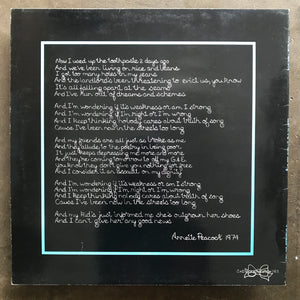 Now I used up the toothpaste 2 days ago
And we've been living on rice and beans
I got too many holes in my jeans
And the landlord's been threatening to evict us, you know
It's all falling apart at the seams
And I've run out of dreams and schemes
And I'm wondering if it's weakness or am I strong
And I'm wondering if I'm right or I'm wrong
And I keep thinking nobody cares about truth or song
Cause I've been now in the streets too long
And my friends are all just as broke as me
And they allude to the poetry in being poor
It just keeps depressing me more and more
And they're coming tomorrow to off my G&E
you know they don't give you nothing for free
And I consider it an assault on my dignity
And I'm wondering if it's weakness or am I strong
And I'm wondering if I'm right or I'm wrong
And I keep thinking nobody cares about truth or song
Cause I've been now in the streets too long
And my kid's just informed me she's outgrown her shoes
And I can't give her any good news
Annette Peacock 1974